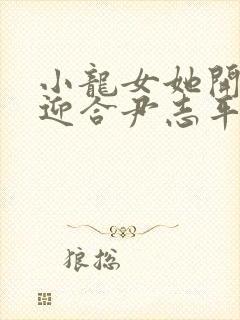 小龍女她開
迎合尹志平
狼總